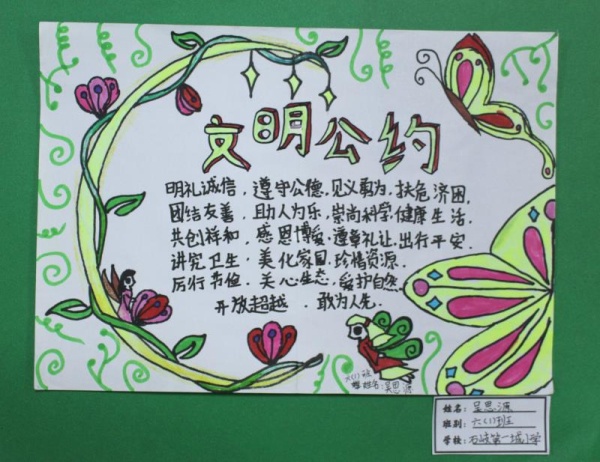 文明公约
明礼诚信，遵守公德，见义勇为，扶危济困，
团结友善，助人为乐，崇尚科学，健康生活，
共创祥和，感恩博爱，遵章礼让，出行平安．
讲究卫生，美化家园，珍惜资源．
厉行节俭．关心生态，爱护自然．
开放超越．敢为人先．
六(1)班
姓名：吴思源
姓名：吴思源
班别：六(1)班
学校：第一城小学